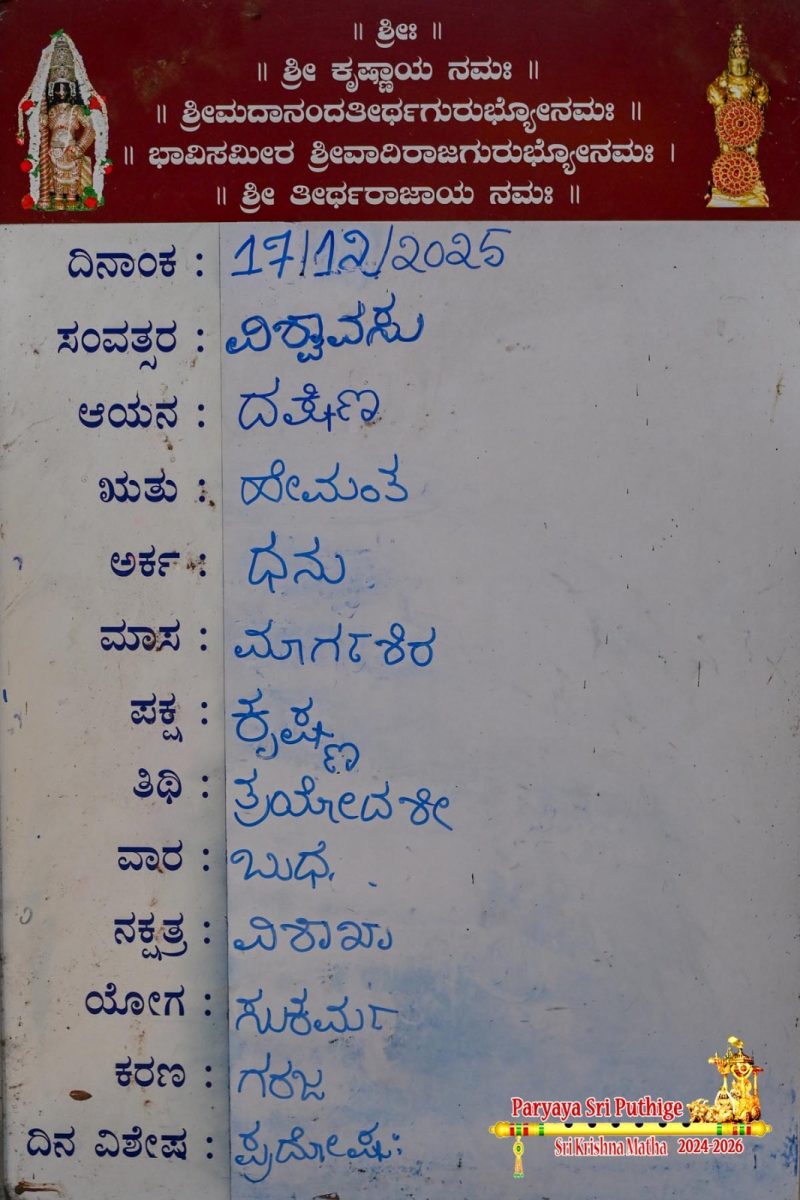 ॥ ಶ್ರೀಃ ॥
॥ ಶ್ರೀ ಕೃಷ್ಣಾಯ ನಮಃ ॥
॥ ಶ್ರೀಮದಾನಂದತೀರ್ಥಗುರುಭ್ಯೋನಮಃ ॥
॥ ಭಾವಿಸಮೀರ ಶ್ರೀವಾದಿರಾಜಗುರುಭ್ಯೋನಮಃ ।
॥ ಶ್ರೀ ತೀರ್ಥರಾಜಾಯ ನಮಃ ॥
ದಿನಾಂಕ : 17/12/2025
ಸಂವತ್ಸರ : ವಿಶ್ವಾವಸು
ಆಯನ : ದಕ್ಷಿಣ
ಋತು : ಹೇಮಂತ
ಅರ್ಕ : ಧನು
ಮಾಸ : ಮಾರ್ಗಶಿರ
ಪಕ್ಷ : ಕೃಷ್ಣ
ತಿಥಿ : ತ್ರಯೋದಶೀ
ವಾರ : ಬುಧ
ನಕ್ಷತ್ರ : ವಿಶಾಖಾ
ಯೋಗ : ಸುಕರ್ಮ
ಕರಣ : ಗರಜ
ದಿನ ವಿಶೇಷ : ಪ್ರದೋಷಃ
Paryaya Sri Puthige
Sri Krishna Matha 2024-2026